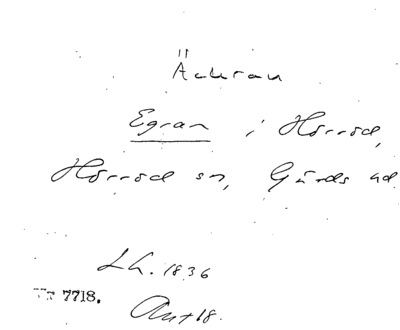 Äckran
Egran i Hörröd,
Hörröd sn, Gärds hd
Lh. 1836
7718.
Ant 18.